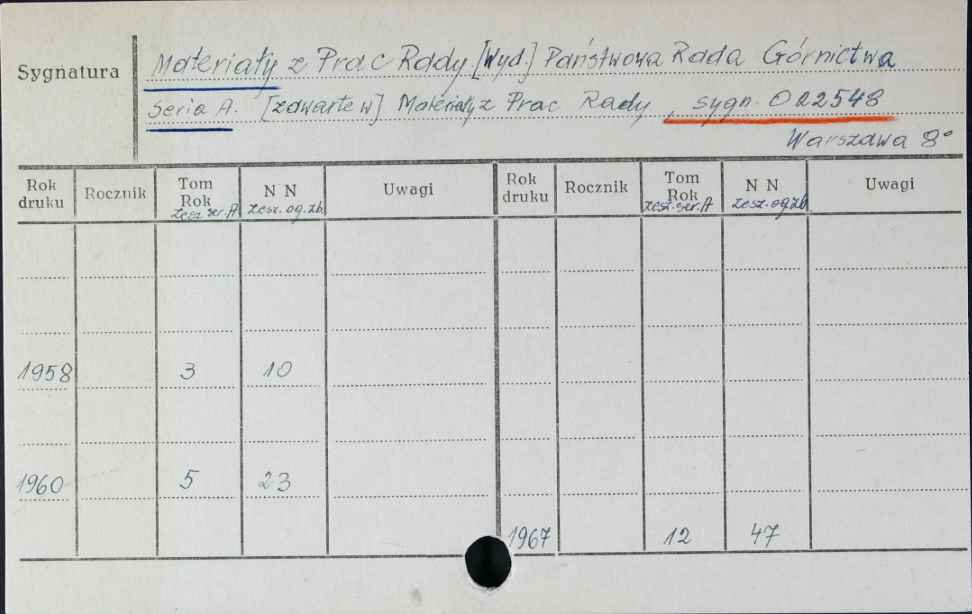 Sygnatura
Materiały z Prac Rady [Wyd.] Państwowa Rada Górnictwa
Seria A. [zawarte w] Materiały z Prac Rady, sygn. O 22548
Warszawa 8°
Rok druku Rocznik Tom Rok zesz. ser. A N N zesz. og. zb. Uwagi Rok druku Rocznik Tom Rok zesz. ser. A N N zesz. og. zb. Uwagi
1958 3 10
1960 5 23
1967 12 47